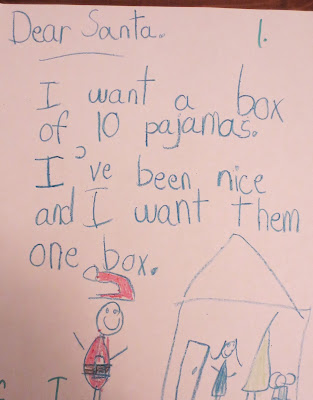 Dear Santa. 1.
I want a box
of 10 pajamas.
I've been nice
and I want them
one box.
I